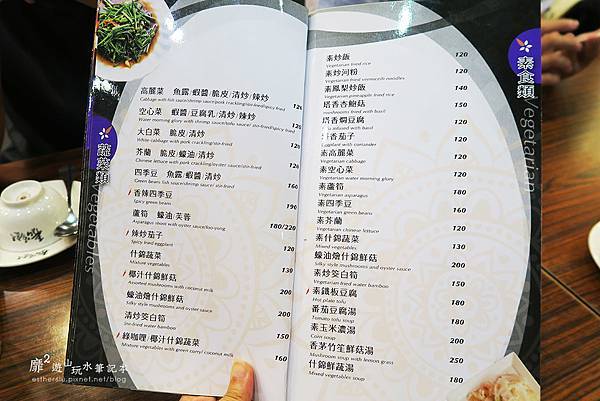 蔬菜類 Vegetables
高麗菜 魚露/蝦醬/脆皮/清炒/辣炒 120
空心菜 蝦醬/豆腐乳/清炒/辣炒 120
大白菜 脆皮/清炒 120
White cabbage with pork crackling/stir-fried
芥蘭 脆皮/蠔油/清炒 120
四季豆 魚露/蝦醬/清炒 160
Green beans fish sauce/shrimp sauce/stir-fried
香辣四季豆 190
Spicy green beans
蘆筍 蠔油/芙蓉 180/220
辣炒茄子
Spicy fried eggplant
什錦蔬菜 130
Mixture vegetables
椰汁什錦鮮菇 200
Assorted mushrooms with coconut milk
蠔油燴什錦鮮菇 200
Silky style mushrooms and oyster sauce
清炒茭白筍 150
Stir-fried water bamboo
綠咖哩/椰汁什錦蔬菜 160
Mixture vegetables with green curry/coconut milk
素食類 Vegetarian
素炒飯 120
Vegetarian fried rice
素炒河粉 120
Vegetarian fried vermicelli noodles
素鳳梨炒飯 160
Vegetarian pineapple fried rice
塔香杏鮑菇 150
mushrooms fried with basil
塔香燜豆腐 120
Tofu infused with basil
塔香茄子 120
Eggplant with coriander
素高麗菜 120
Vegetarian cabbage
素空心菜 120
Vegetarian water morning glory
素蘆筍 180
Vegetarian asparagus
素四季豆 160
Vegetarian green beans
素芥蘭 120
Vegetarian chinese lettuce
素什錦蔬菜 130
Mixed vegetables
蠔油燴什錦鮮菇 200
Silky style mushrooms and oyster sauce
素炒茭白筍 150
Vegetarian fried water bamboo
素鐵板豆腐 180
Hot plate tofu
番茄豆腐湯 180
Tomato tofu soup
素玉米濃湯 200
Corn soup
香茅竹笙鮮菇湯 200
Mushroom soup with lemon grass
什錦鮮蔬湯 180
Mixed vegetables soup
靡²遊山玩水筆記本
estherslu.pixnet.net/blog